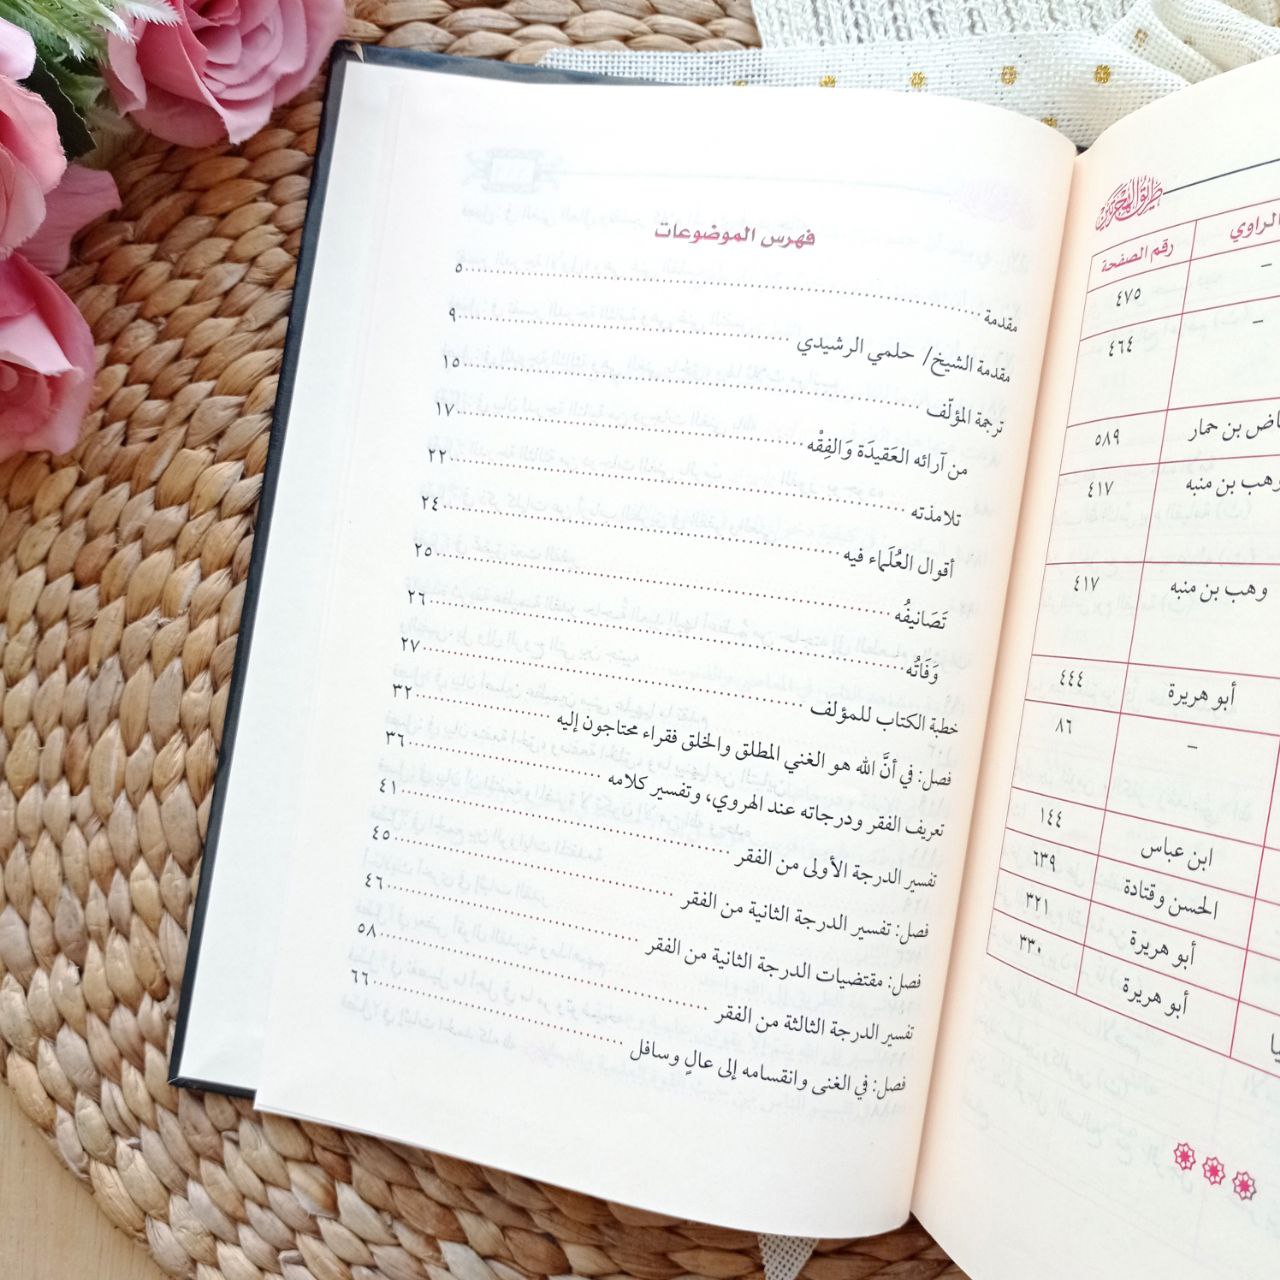 طريق الهجرتين
الراوي
رقم الصفحة
–
٤٧٥
–
٤٦٤
بن حمار
٥٨٩
وهب بن منبه
٤١٧
وهب بن منبه
٤١٧
أبو هريرة
٤٤٤
–
٨٦
ابن عباس
١٤٤
الحسن وقتادة
٦٣٩
أبو هريرة
٣٢١
أبو هريرة
٣٣٠
فهرس الموضوعات
مقدمة ٥
مقدمة الشيخ/ حلمي الرشيدي ٩
ترجمة المؤلّف ١٥
من آرائه العَقيدَة وَالفِقْه ١٧
تلامذته ٢٢
أقوال العُلَماء فيه ٢٤
تَصَانيفُه ٢٥
وَفَاتُه ٢٦
خطبة الكتاب للمؤلف ٢٧
فصل: في أنَّ الله هو الغني المطلق والخلق فقراء محتاجون إليه ٣٢
تعريف الفقر ودرجاته عند الهروي، وتفسير كلامه ٣٦
تفسير الدرجة الأولى من الفقر ٤١
فصل: تفسير الدرجة الثانية من الفقر ٤٥
فصل: مقتضيات الدرجة الثانية من الفقر ٤٦
تفسير الدرجة الثالثة من الفقر ٥٨
فصل: في الغنى وانقسامه إلى عالٍ وسافل ٦٦